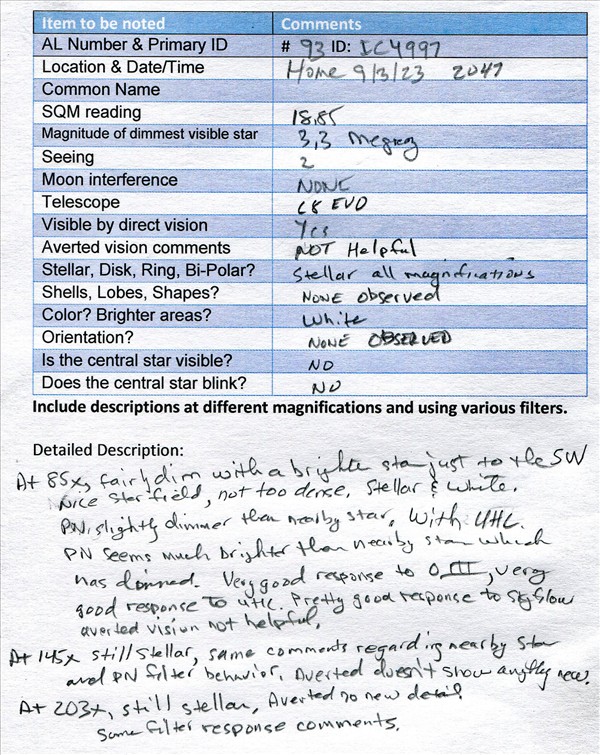 Item to be noted Comments
AL Number & Primary ID # 93 ID: IC4997
Location & Date/Time Home 9/3/23 2047
Common Name
SQM reading 18.85
Magnitude of dimmest visible star 3,3 Megrez
Seeing 2
Moon interference NONE
Telescope C8 EVO
Visible by direct vision Yes
Averted vision comments NOT Helpful
Stellar, Disk, Ring, Bi-Polar? Stellar all magnifications
Shells, Lobes, Shapes? NONE observed
Color? Brighter areas? White
Orientation? NONE OBSERVED
Is the central star visible? NO
Does the central star blink? NO
Include descriptions at different magnifications and using various filters.
Detailed Description:
At 85x, fairly dim with a brighter star just to the SW
Nice star field, not too dense. Stellar & white.
PN slightly dimmer than nearby star. With UHC.
PN seems much brighter than nearby star which
has dimmed. Very good response to OIII, very
good response to UHC. Pretty good response to Skyglow
averted vision not helpful.
At 145x still stellar, same comments regarding nearby star
and PN filter behavior. Averted doesn't show anything new.
At 203x, still stellar, Averted no new detail
Same filter response comments.